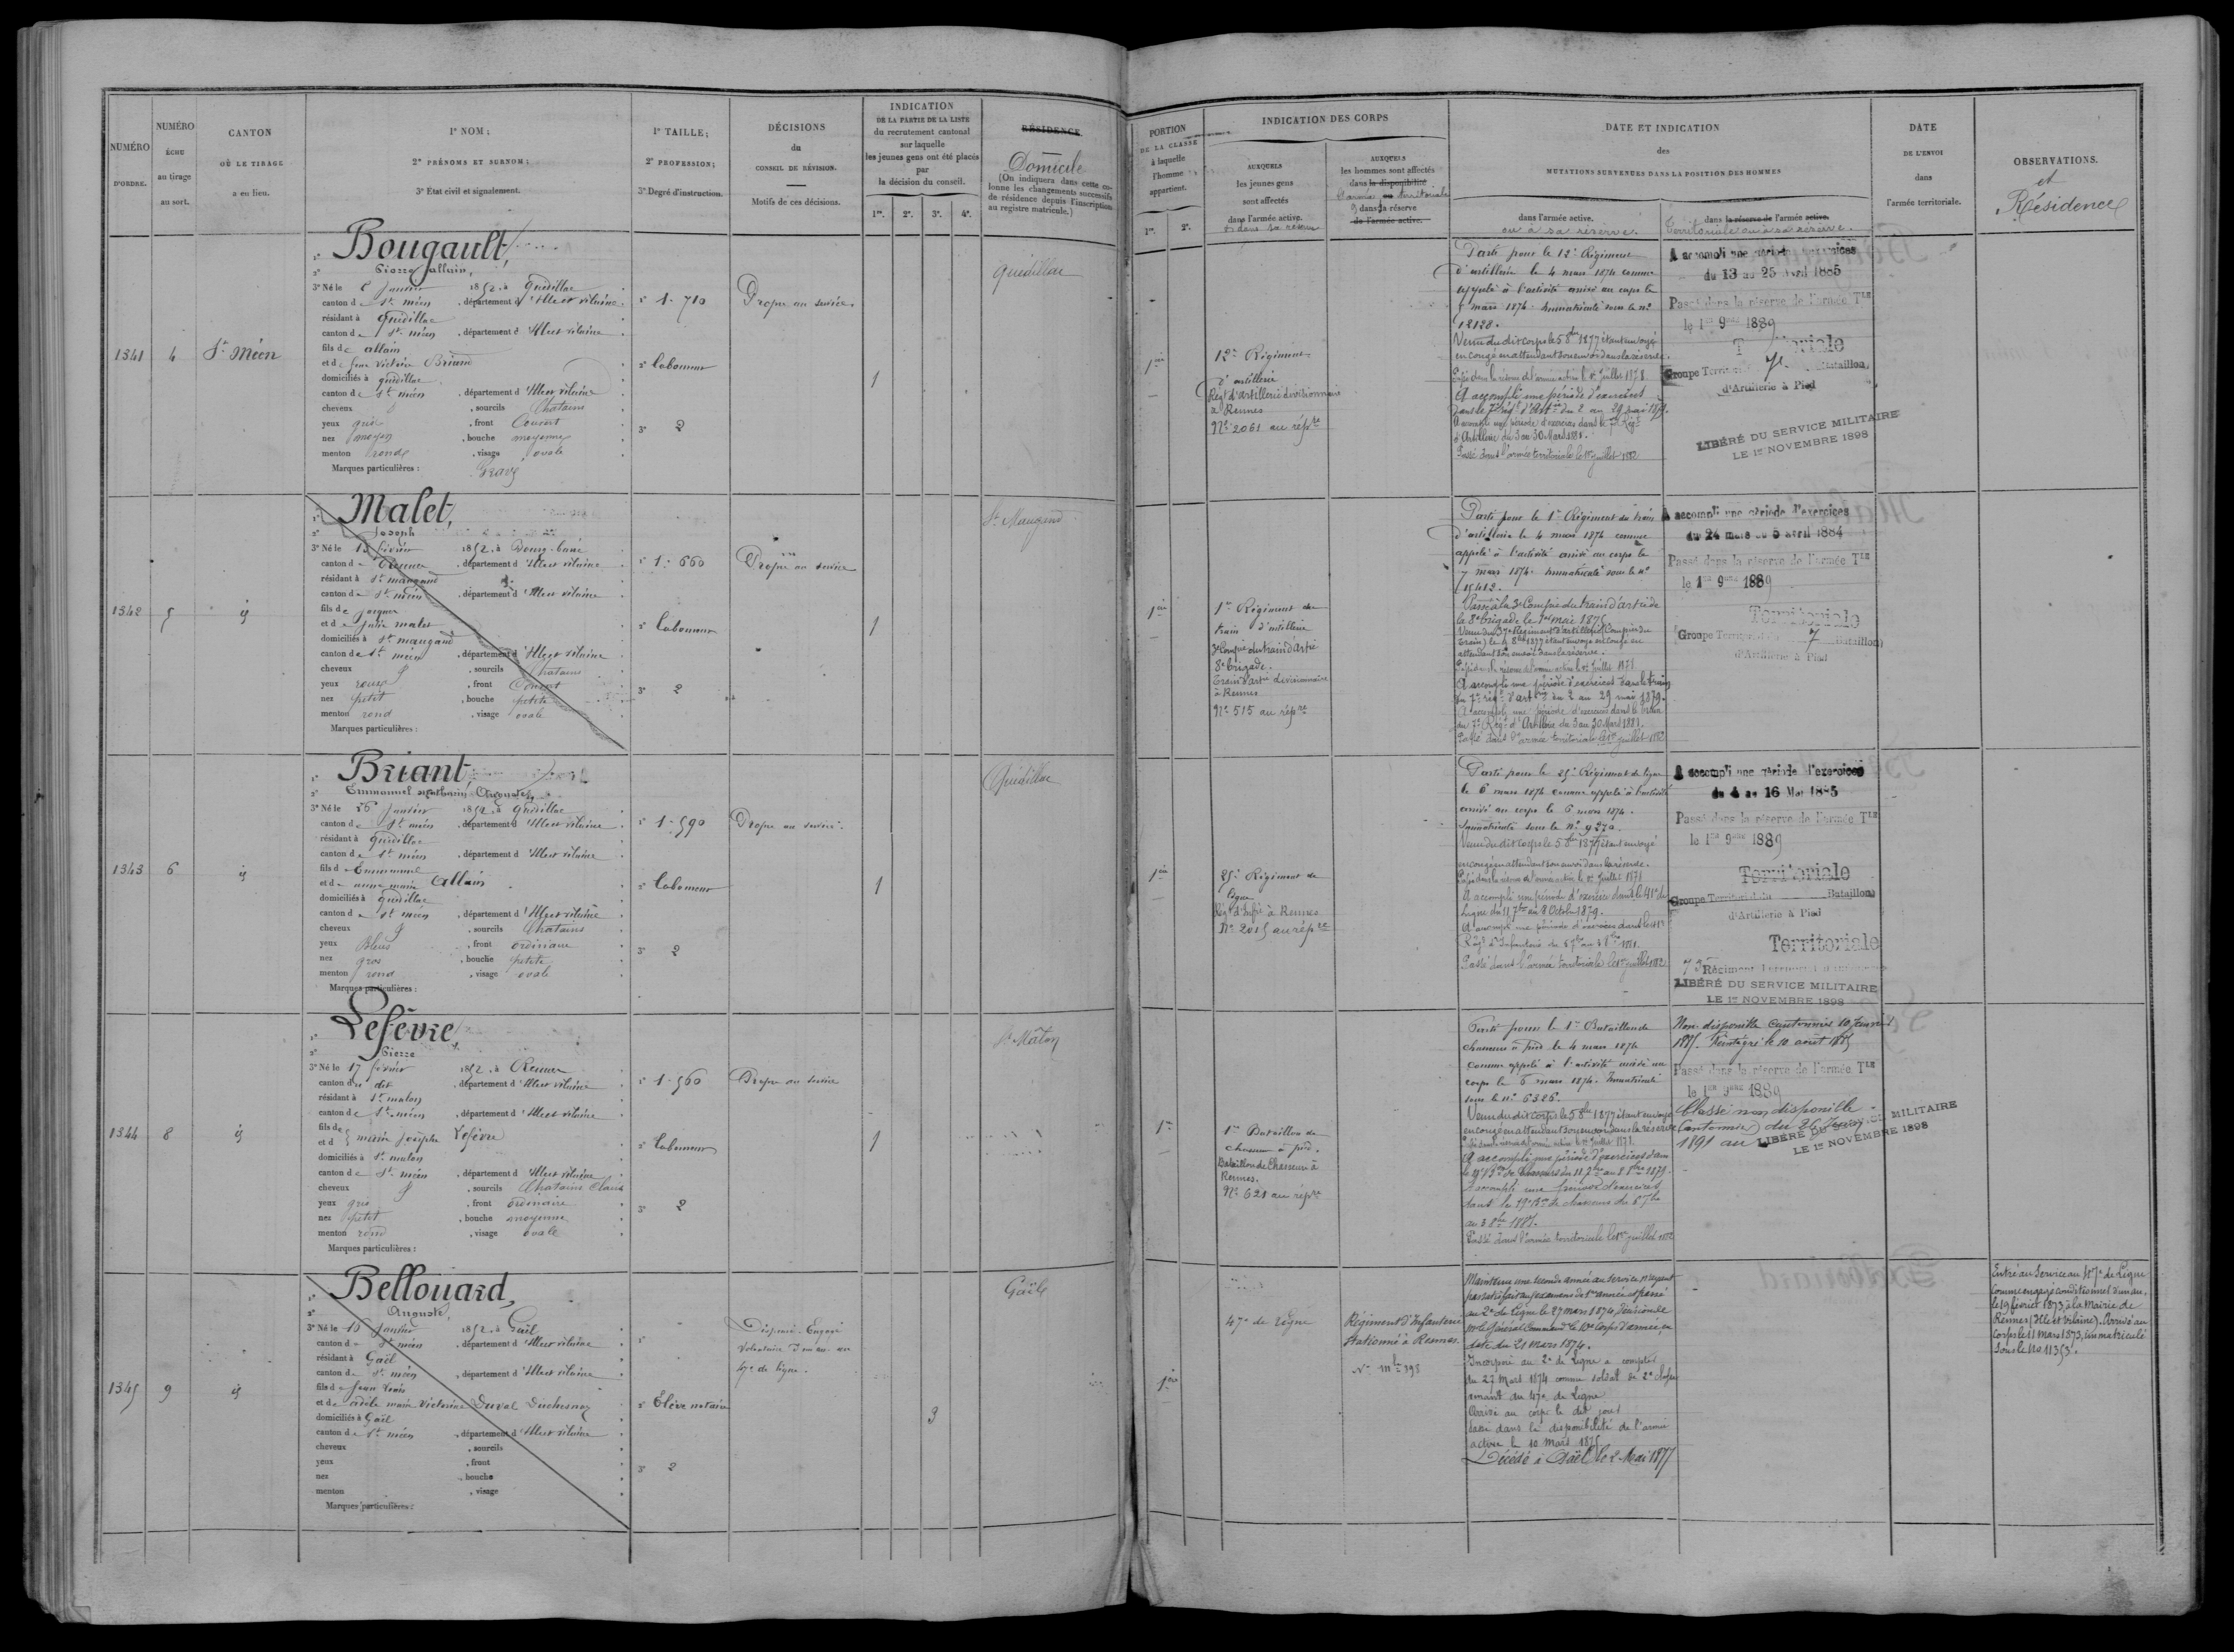 NUMÉRO
D'ORDRE.
NUMÉRO
ÉCHU
au tirage
au sort.
CANTON
OÙ LE TIRAGE
a eu lieu.
1° NOM;
2° PRÉNOMS ET SURNOM;
3° Etat civil et signalement.
1° TAILLE;
2° PROFESSION;
3° Degré d'instruction.
DÉCISIONS
du
CONSEIL DE RÉVISION.
Motifs de ces décisions.
INDICATION
DE LA PARTIE DE LA LISTE
du recrutement cantonal
sur laquelle
les jeunes gens ont été placés
par
la décision du conseil.
1re. 2e. 3e. 4e.
RÉSIDENCE
Domicile
(On indiquera dans cette co-
lonne les changements successifs
de résidence depuis l'inscription
au registre matricule.)
PORTION
DE LA CLASSE
à laquelle
l'homme
appartient.
1re. 2e.
INDICATION DES CORPS
AUXQUELS
les jeunes gens
sont affectés
dans l'armée active.
et dans sa réserve
AUXQUELS
les hommes sont affectés
dans la disponibilité
l'armée territoriale
dans sa réserve
de l'armée active.
DATE ET INDICATION
des
MUTATIONS SURVENUES DANS LA POSITION DES HOMMES
dans l'armée active.
ou à sa réserve.
dans la réserve de l'armée active.
Territoriale ou à sa réserve.
DATE
DE L'ENVOI
dans
l'armée territoriale.
OBSERVATIONS.
et
Résidence
1341 4 St Méen
1° Bougault,
2° Pierre allain,
3° Né le janvier 1852, à Quédillac
canton de St méen, département d'Ille et vilaine
résidant à Quédillac
canton de St méen, département d'Ille et vilaine
fils de allain
et de Jeanne victoire Briand
domiciliés à quédillac
canton de St méen, département d'Ille et vilaine
cheveux , sourcils Chatains
yeux gris , front Couvert
nez moyen , bouche moyenne
menton ronde , visage ovale
Marques particulières : Gravé
1° 1.710
2° laboureur
3° 2
Propre au service
1
quédillac
1ère
12e Régiment
d'artillerie
Régt d'artillerie divisionnaire
à Rennes
N° 2061 au répre
Parti pour le 12e Régiment
d'artillerie le 4 mars 1874 comme
appelé à l'activité arrivé au corps le
mars 1874. Immatriculé sous le n°
12128.
Venu du dit corps le 5 1877 étant envoyé
en congé en attendant son envoi dans la réserve.
Passé dans la réserve de l'armée active le 1er Juillet 1878.
A accompli une période d'exercices
dans le 7e régt d'Artie du 2 au 29 mai 1879.
A accompli une période d'exercices dans le 7e Régt
d'Artillerie du 3 au 30 Mars 1881.
Passé dans l'armée territoriale le 1er juillet 1882
A accompli une période d'exercices
du 13 au 25 Avril 1885
Passé dans la réserve de l'armée Tle
le 1er 9bre 1889
Groupe Territorial 7e Bataillon
d'Artillerie à Pied
LIBÉRÉ DU SERVICE MILITAIRE
LE 1er NOVEMBRE 1898
1342 5 id
1° Malet,
2° Joseph
3° Né le 13 février 1852, à Bourg-barré
canton de Rennes, département d'Ille et vilaine
résidant à St maugand
canton de St méen, département d'Ille et vilaine
fils de jacques
et de julie malet
domiciliés à St maugand
canton de St méen, département d'Ille et vilaine
cheveux , sourcils Chatains
yeux roux , front Couvert
nez petit , bouche petite
menton rond , visage ovale
Marques particulières :
1° 1.660
2° laboureur
3° 2
Propre au service
1
St Maugand
1ère
1er Régiment du
train d'artillerie
3e Compie du train d'artie
8e brigade.
Train d'artie divisionnaire
à Rennes
N° 515 au répre
Parti pour le 1er Régiment du train
d'artillerie le 4 mars 1874 comme
appelé à l'activité arrivé au corps le
7 mars 1874. Immatriculé sous le n°
15412.
Passé à la 3e Compie du train d'artie de
la 8e brigade le 1er mai 1875
Venu du 37e Régiment d'artillerie (Compie du
train) le 4 8bre 1877 étant envoyé en congé en
attendant son envoi dans la réserve.
Passé dans la réserve de l'armée active le 1er Juillet 1878
A accompli une période d'exercices dans le train
du 7e régt d'artie du 2 au 29 mai 1879
A accompli une période d'exercices dans le train
du 7e Régt d'Artillerie du 3 au 30 Mars 1881.
Passé dans l'armée territoriale le 1er juillet 1882
A accompli une période d'exercices
du 24 mars au 5 avril 1884
Passé dans la réserve de l'armée Tle
le 1er 9bre 1889
Territoriale
Groupe Territorial du 7 Bataillon
d'Artillerie à Pied
1343 6 id
1° Briant,
2° Emmanuel mathurin Auguste,
3° Né le 16 janvier 1852, à quédillac
canton de St méen, département d'Ille et vilaine
résidant à quédillac
canton de St méen, département d'Ille et vilaine
fils d'Emmanuel
et de anne marie Allain
domiciliés à quédillac
canton de St méen, département d'Ille et vilaine
cheveux , sourcils Chatains
yeux Bleus , front ordinaire
nez gros , bouche petite
menton rond , visage ovale
Marques particulières :
1° 1.590
2° laboureur
3° 2
Propre au service
1
Quédillac
1ère
25e Régiment de
ligne
Régt d'Infie à Rennes
N° 2015 au répre
Parti pour le 25e Régiment de ligne
le 6 mars 1874 comme appelé à l'activité
arrivé au corps le 6 mars 1874.
Immatriculé sous le N° 9270.
Venu du dit corps le 5 8bre 1877 étant envoyé
en congé en attendant son envoi dans la réserve.
Passé dans la réserve de l'armée active le 1er Juillet 1878
A accompli une période d'exercices dans le 41e de
Ligne du 11 7bre au 8 Octobre 1879.
A accompli une période d'exercices dans le 41e
Régt d'Infanterie du 6 7bre au 3 8bre 1881.
Passé dans l'armée territoriale le 1er juillet 1882
A accompli une période d'exercices
du 4 au 16 Mai 1885
Passé dans la réserve de l'armée Tle
le 1er 9bre 1889
Territoriale
Groupe Territorial du Bataillon
d'Artillerie à Pied
Territoriale
75 Régiment Territorial d'Infanterie
LIBÉRÉ DU SERVICE MILITAIRE
LE 1er NOVEMBRE 1898
1344 8 id
1° Lefèvre,
2° Pierre
3° Né le 17 février 1852, à Rennes
canton du dit, département d'Ille et vilaine
résidant à St malon
canton de St méen, département d'Ille et vilaine
fils de
et d marie Josèphe Lefèvre
domiciliés à St malon
canton de St méen, département d'Ille et vilaine
cheveux , sourcils Chatains Clairs
yeux gris , front ordinaire
nez petit , bouche moyenne
menton rond , visage ovale
Marques particulières :
1° 1.560
2° laboureur
3° 2
Propre au service
1
St Mâlon
1re
1er Bataillon de
chasseurs à pied.
Bataillon de Chasseurs à
Rennes.
N° 621 au répre
Parti pour le 1er Bataillon de
chasseurs à pied le 4 mars 1874
comme appelé à l'activité arrivé au
corps le 6 mars 1874. Immatriculé
sous le n° 6326.
Venu du dit corps le 5 8bre 1877 étant envoyé
en congé en attendant son envoi dans la réserve
Passé dans la réserve de l'armée active le 1er Juillet 1878.
A accompli une période d'exercices dans
le 19e Bon de Chasseurs du 11 7bre au 8 8bre 1879.
A accompli une période d'exercices
dans le 19e Bon de chasseurs du 6 7bre
au 3 8bre 1881.
Passé dans l'armée territoriale le 1er juillet 1882
Non disponible Cantonnier 10 janvier
1885. Réintégré le 10 août 1885
Passé dans la réserve de l'armée Tle
le 1er 9bre 1889
Classé non disponible
(Cantonnier) du 26
1891 au
LIBÉRÉ DU SERVICE MILITAIRE
LE 1er NOVEMBRE 1898
1345 9 id
1° Bellouard,
2° Auguste,
3° Né le 15 janvier 1852, à Gaël
canton de St méen, département d'Ille et vilaine
résidant à Gaël
canton de St méen, département d'Ille et vilaine
fils de Jean Louis
et de adèle marie victorine Duval Duchesnay
domiciliés à Gaël
canton de St méen, département d'Ille et vilaine
cheveux , sourcils
yeux , front
nez , bouche
menton , visage
Marques particulières :
1°
2° Elève notaire
3° 2
Dispensé. Engagé
volontaire d'un an au
47e de ligne.
3
Gaël
1ère
47e de ligne
Régiment d'Infanterie
stationné à Rennes.
N° mle 398
Maintenu une seconde année au service n'ayant
pas satisfait aux examens de 1ère année et passé
au 2e de Ligne le 27 mars 1874, Décision de
Mr le Général Commandt le 10e Corps d'armée en
date du 21 mars 1874.
Incorporé au 2e de Ligne a compter
du 27 Mars 1874 comme soldat de 2e classe
venant du 47e de Ligne
Arrivé au corps le dit jour
Passé dans la disponibilité de l'armée
active le 10 Mars 1875
Décédé à Gaël le 2 Mai 1877
Entré au Service au 47e de Ligne
comme engagé conditionnel d'un an,
le 19 février 1873, à la Mairie de
Rennes (Ille et Vilaine). Arrivé au
Corps le 11 Mars 1873, immatriculé
sous le No 11353.